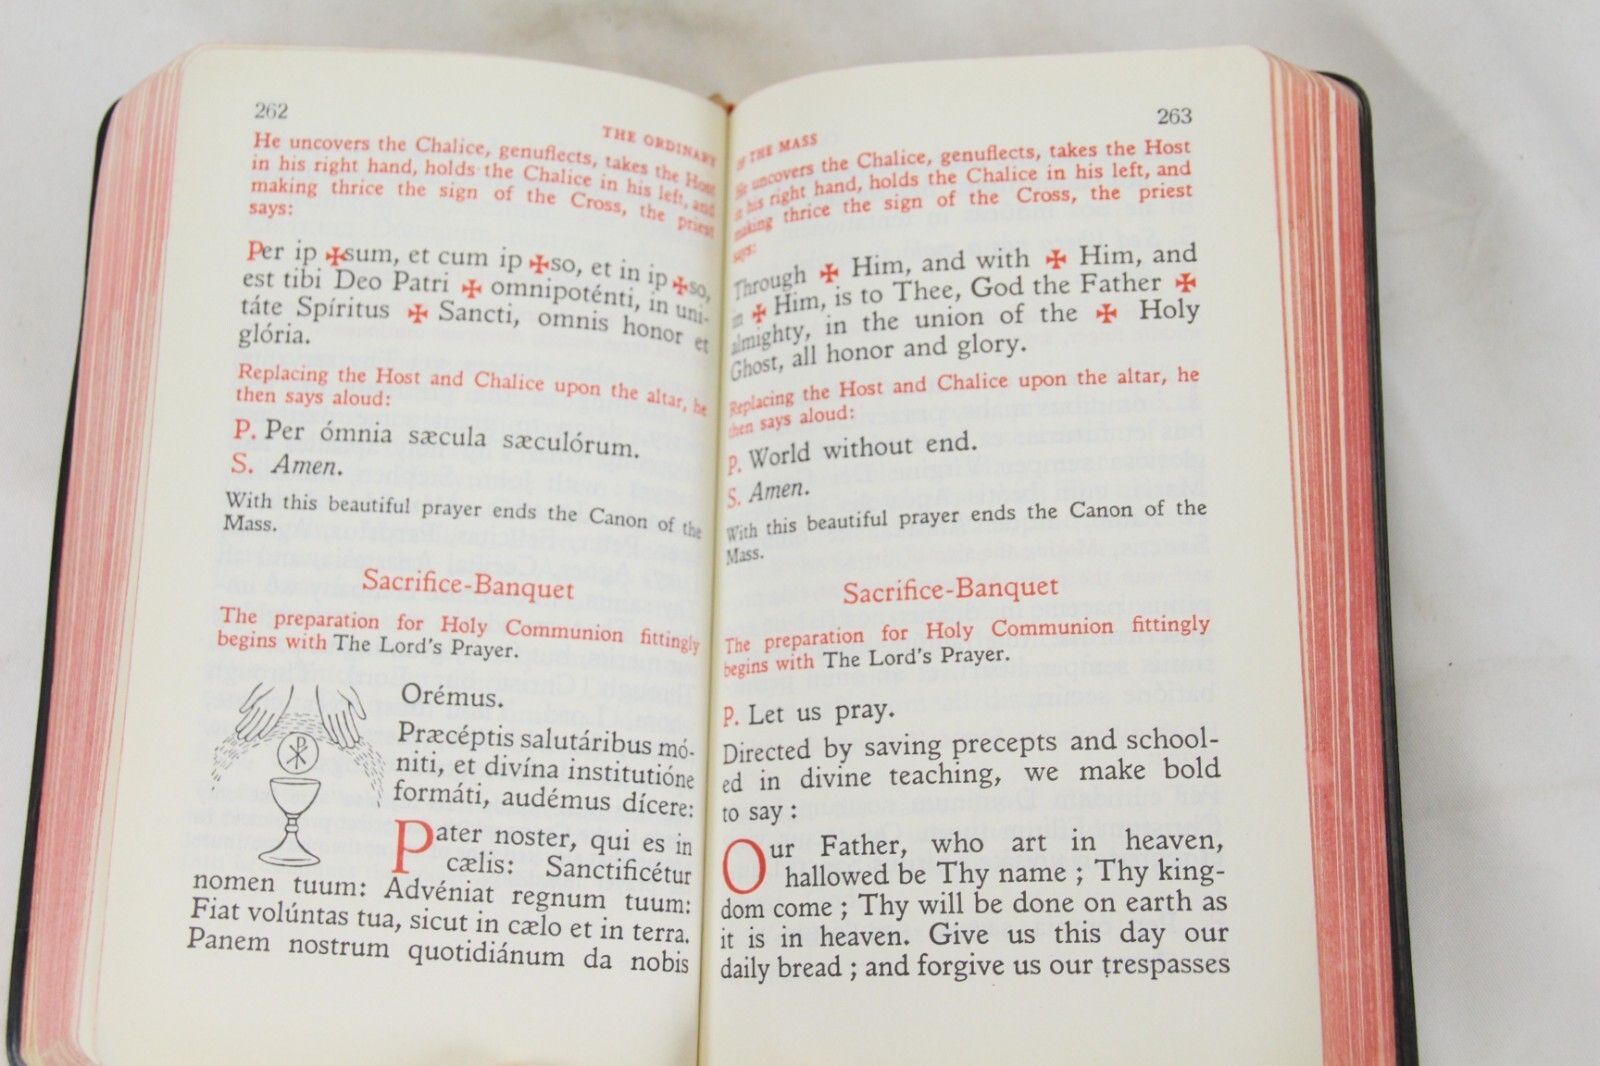 262
THE ORDINARY
He uncovers the Chalice, genuflects, takes the Host
in his right hand, holds the Chalice in his left, and
making thrice the sign of the Cross, the priest
says:
Per ip ✠sum, et cum ip ✠so, et in ip ✠so,
est tibi Deo Patri ✠ omnipoténti, in uni-
táte Spíritus ✠ Sancti, omnis honor et
glória.
Replacing the Host and Chalice upon the altar, he
then says aloud:
P. Per ómnia sæcula sæculórum.
S. Amen.
With this beautiful prayer ends the Canon of the
Mass.
Sacrifice-Banquet
The preparation for Holy Communion fittingly
begins with The Lord's Prayer.
Orémus.
Præcéptis salutáribus mó-
niti, et divína institutióne
formáti, audémus dícere:
Pater noster, qui es in
cælis: Sanctificétur
nomen tuum: Advéniat regnum tuum:
Fiat volúntas tua, sicut in cælo et in terra.
Panem nostrum quotidiánum da nobis
263
OF THE MASS
He uncovers the Chalice, genuflects, takes the Host
in his right hand, holds the Chalice in his left, and
making thrice the sign of the Cross, the priest
says:
Through ✠ Him, and with ✠ Him, and
in ✠ Him, is to Thee, God the Father ✠
almighty, in the union of the ✠ Holy
Ghost, all honor and glory.
Replacing the Host and Chalice upon the altar, he
then says aloud:
P. World without end.
S. Amen.
With this beautiful prayer ends the Canon of the
Mass.
Sacrifice-Banquet
The preparation for Holy Communion fittingly
begins with The Lord's Prayer.
P. Let us pray.
Directed by saving precepts and school-
ed in divine teaching, we make bold
to say :
Our Father, who art in heaven,
hallowed be Thy name ; Thy king-
dom come ; Thy will be done on earth as
it is in heaven. Give us this day our
daily bread ; and forgive us our trespasses